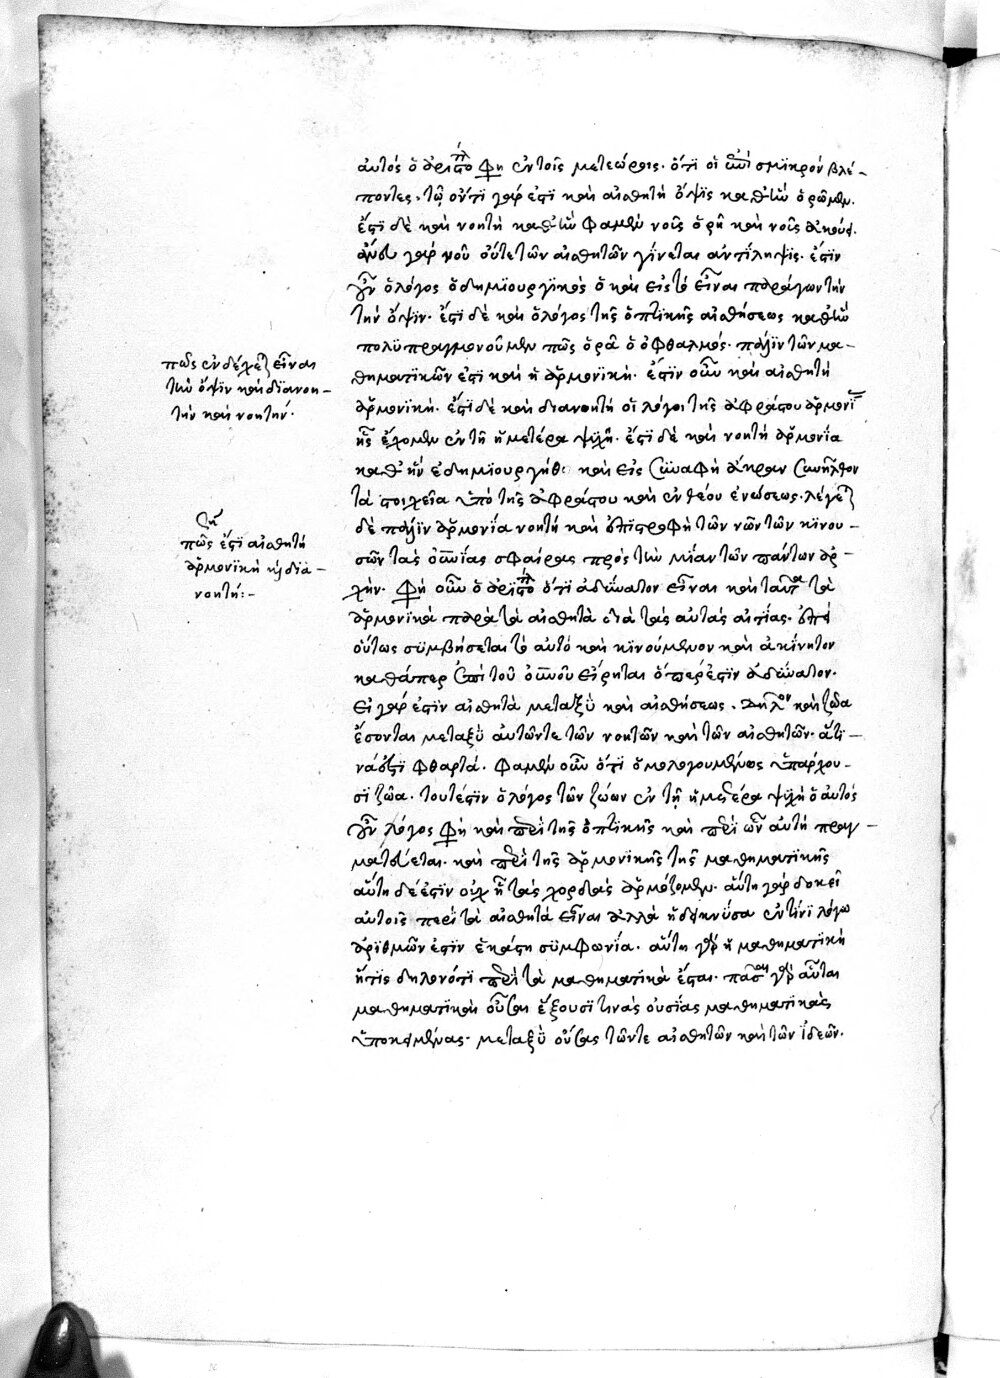 αὐτός ὁ ἀριστο φη ἐν τοῖς μετεώροις. ὅτι οἱ ἐπὶ σμϊκρόν βλέ-
ποντες. τῶ ὄντϊ γάρ ἐστϊ καὶ αἰσθητὴ ὄψϊς καθ' ἣν ὁρῶμεν.
ἔστϊ δὲ καὶ νοητὴ καθ' ἣν φαμὲν νοῦς ὁρῆ καὶ νοῦς ἀκούει.
ἄνευ γάρ νοῦ οὔτε τῶν αἰσθητῶν γίνεται ἀντίληψϊς. ἐστϊν
οὖν ὁ λόγος ὁ δημϊουργϊκὸς ὁ καὶ εἰς τὸ εἶναι παράγων τὴν
τὴν ὄψϊν. ἔστϊ δὲ καὶ ὁ λόγος τῆς ὀπτϊκῆς αἰσθήσεως καθ' ἣν
πολϋπραγμονοῦμεν πῶς ὁρᾶ ὁ ὀφθαλμός. πάλϊν τῶν μα-
θηματϊκῶν ἐστϊ καὶ ἡ ἁρμονϊκή. ἔστϊν οὖν καὶ αἰσθητὴ
ἁρμονϊκή. ἔστϊ δὲ καὶ διανοητὴ οἱ λόγοι τῆς ἀφράστου ἁρμονί
ἧς ἔχομεν ἐν τῆ ἡμετέρα ψϋχῆ. ἔστϊ δὲ καὶ νοητὴ ἁρμονία
καθ' ἣν ἐδημϊουργήθη καὶ εἰς συναφὴ ἄκραν συνῆλθον
τὰ στοιχεῖα ὑπὸ τῆς ἀφράστου καὶ ἐνθέου ἑνώσεως. λέγε
δὲ πάλϊν ἁρμονία νοητὴ καὶ ἐπϊστροφὴ τῶν νῶν τῶν κϊνου-
σῶν τὰς οὐνίας σφαίρας πρὸς τὴν μίαν τῶν πάντων ἀρ-
χήν. φη οὖν ὁ ἀρϊστο ὅτϊ ἀδύνατον εἶναι καὶ ταῦτα τὰ
ἁρμονϊκὰ παρὰ τὰ αἰσθητὰ διὰ τὰς αὐτάς αἰτίας. ἐπεὶ
οὕτως σϋμβήσεται τὸ αὐτὸ καὶ κϊνούμενον καὶ ἀκίνητον
καθάπερ ἐπὶ τοῦ οὐνοῦ εἴρηται ὅπερ ἐστϊν ἀδύνατον.
εἰ γάρ ἐστϊν αἰσθητὰ μεταξὺ καὶ αἰσθήσεως. δῆλον καὶ ζῶα
ἔσονται μεταξὺ αὐτῶν τε τῶν νοητῶν καὶ τῶν αἰσθητῶν. ἅτϊ-
νά ἐστϊ φθαρτά. φαμὲν οὖν ὅτϊ ὁμολογουμένως ὑπάρχου-
σϊ ζῶα. τουτέστϊν ὁ λόγος τῶν ζώων ἐν τῆ ἡμετέρα ψϋχῆ ὁ αὐτός
οὖν λόγος φη καὶ περὶ τῆς ὀπτϊκῆς καὶ περὶ ὧν αὕτη πραγ-
ματεύεται. καὶ περὶ τῆς ἁρμονϊκῆς τῆς μαθηματϊκῆς
αὕτη δέ ἐστϊν οὐχ ἡ τὰς χορδὰς ἁρμόζομεν. αὕτη γάρ δοκεῖ
αὐτοῖς περὶ τὰ αἰσθητὰ εἶναι ἀλλὰ ἡ δεικνῦσα ἐν τίνϊ λόγω
ἀρϊθμῶν ἐστϊν ἑκάστη σϋμφωνία. αὕτη γὰρ ἡ μαθηματϊκή
ἥτϊς δηλονότϊ περὶ τὰ μαθηματϊκὰ ἔσται. πᾶσαι γὰρ αὗται
μαθηματϊκαὶ οὖσαι ἕξουσϊ τινὰς οὐσίας μαθηματϊκὰς
ὑποκειμένας. μεταξὺ οὔσας τῶν τε αἰσθητῶν καὶ τῶν ἰδεῶν.
πῶς ἐνδέχε εἶναι
τὴν ὄψϊν καὶ δϊανοη-
τὴν καὶ νοητήν.
ση
πῶς ἐστϊ αἰσθητὴ
ἁρμονϊκὴ κὶ δϊα-
νοητή:-